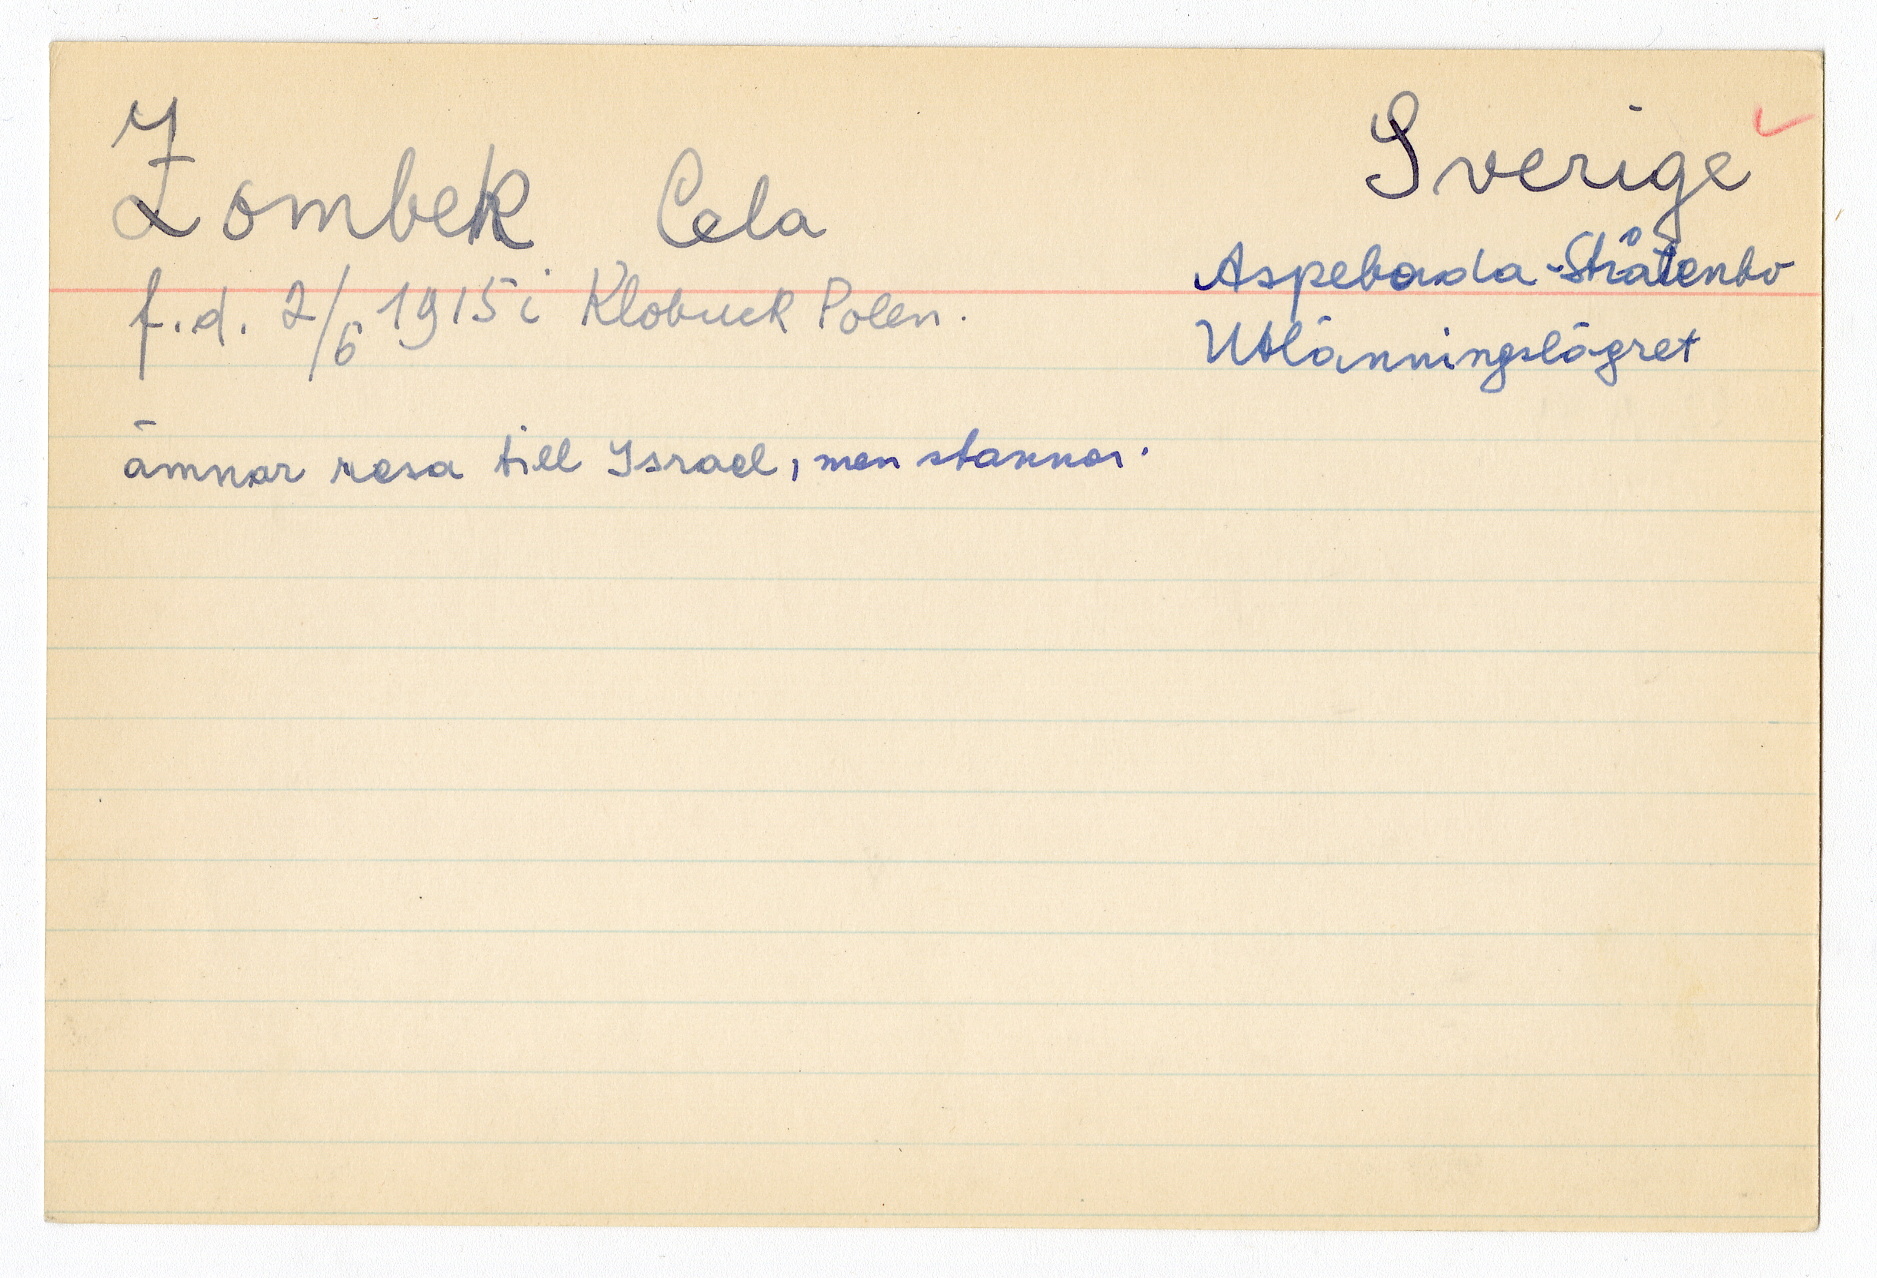 Z
Zombek Cela
Sverige
Aspeboda-Stråtenbo
f.d. 2/6 1915 i Klobuck Polen.
Utlänningslägret
ämnar resa till Israel, men stannar.